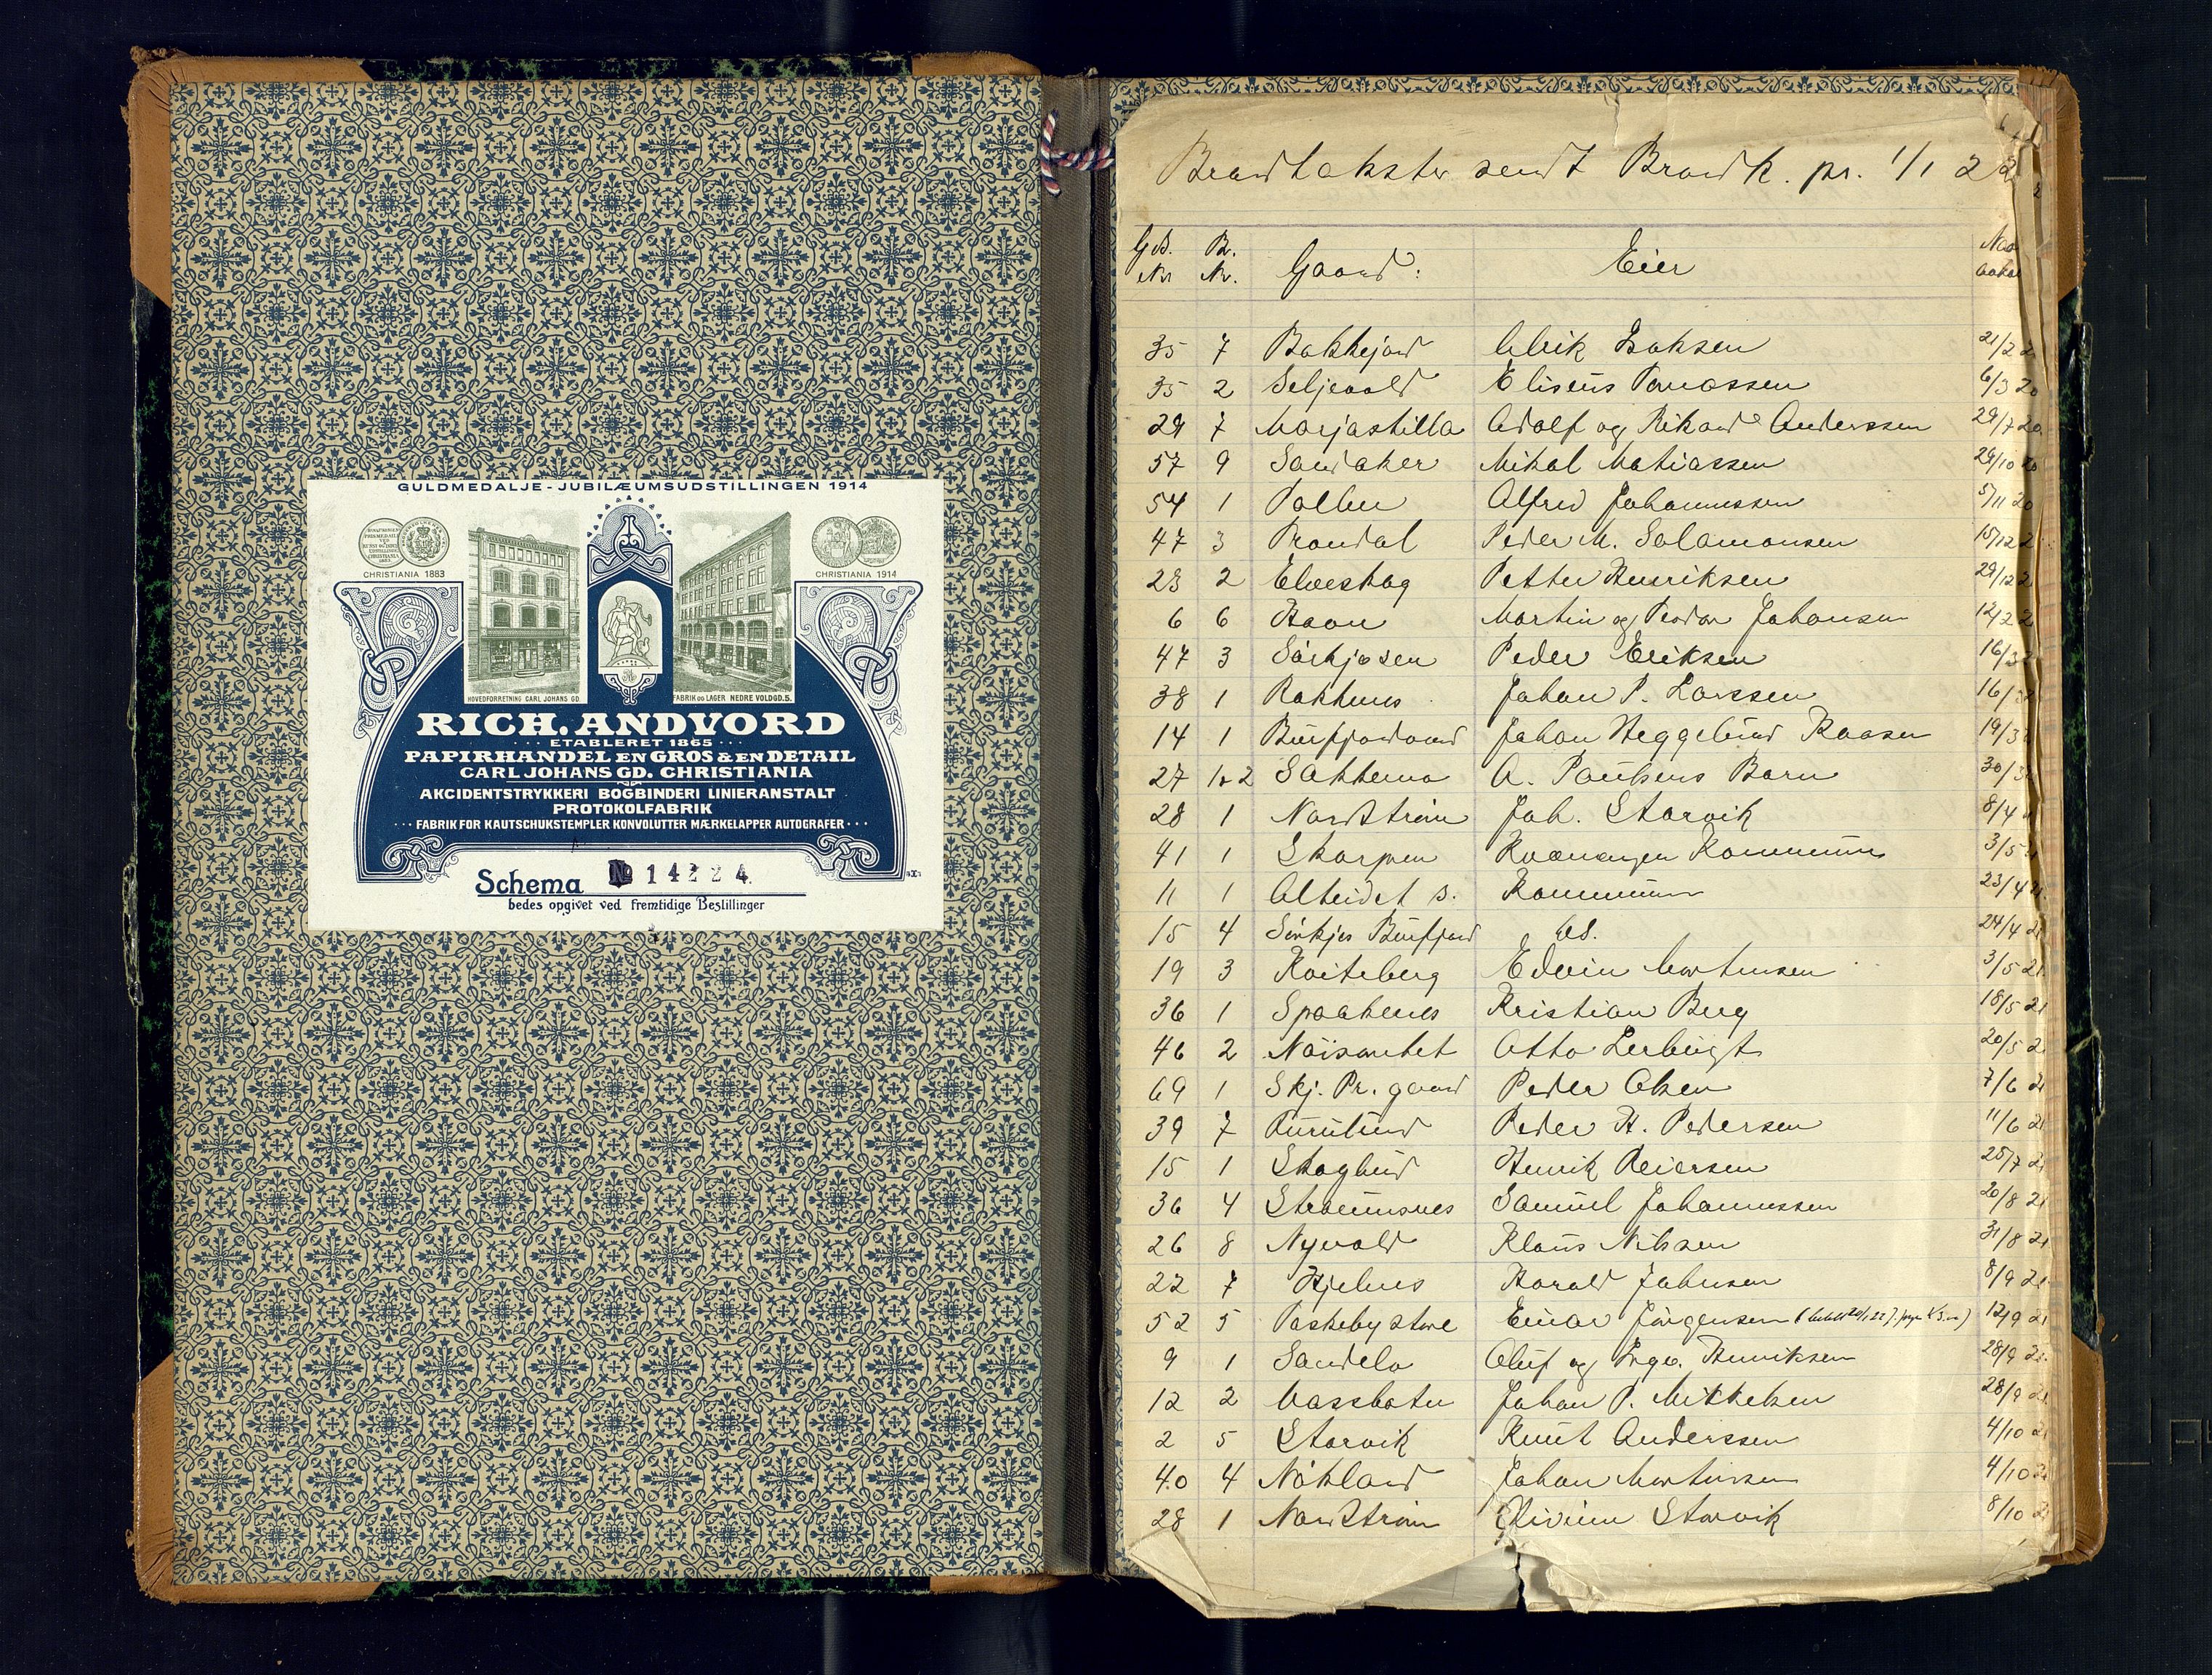 GULDMEDALJE - JUBILÆUMSUDSTILLINGEN 1914
CHRISTIANIA 1883
CHRISTIANIA 1914
HOVEDFORRETNING CARL JOHANS GD.
FABRIK OG LAGER NEDRE VOLDGD.5.
RICH. ANDVORD
··· ETABLERET 1865 ···
PAPIRHANDEL EN GROS & EN DETAIL
CARL JOHANS GD. CHRISTIANIA
AKCIDENTSTRYKKERI BOGBINDERI LINIERANSTALT
PROTOKOLFABRIK
··· FABRIK FOR KAUTSCHUKSTEMPLER KONVOLUTTER MÆRKELAPPER AUTOGRAFER ···
Schema No 14224.
bedes opgivet ved fremtidige Bestillinger
Brandtakster sendt Brandk. pr. 1/1 22
G.B. Nr Br. Nr. Gaard: Eier
35 7 Bakkejord Ulrik Isaksen 21/2
35 2 Seljevold Eliseus Tomassen 6/3 20
29 7 Marjastilla Adolf og Rikard Anderssen 29/7 20
57 9 Sandaker Mikal Matiassen 29/10 20
54 1 Alfred Johannessen 5/11 20
47 3 Peder M. Salamonsen 15/12
23 2 Elveskog Petter Henriksen 29/12
6 6 Martin og Johansen
47 3 Sörkjosen Peder Eriksen 16/3
38 1 Rakkenes Johan P. Larssen 16/3
14 1 Burfjordvand Johan Heggelund Kaasen 19/3
27 1&2 Sakkemo A. Paulsens Barn 30/3
28 1 Nordström Joh. Storvik 8/4
41 1 Skorpen Kvænangen Kommune 3/5
11 1 Alteidet s. Kommune 23/4 21
15 4 Sörkjos Burfjord AS. 24/4 21
19 3 Kviteberg Edvin Mortensen 3/5 21
36 1 Spaakenes Kristian Berg 18/5 21
46 2 Otto 20/5 21
69 1 Skj. Pr. gaard Peder Olsen 7/6 21
39 7 Furulund Peder H. Pedersen 11/6 21
15 1 Skoglund Henrik Reiersen 25/7 21
36 4 Straumsnes Samuel Johannessen 20/8 21
26 8 Nyvold Klaus Nilssen 31/8 21
22 7 Hjelnes Harald Johnsen 8/9 21
52 5 Einar Jörgensen 12/9 21
9 1 Sandelo Oluf og Ingv. Henriksen 28/9 21
12 2 Vassboten Johan P. Mikkelsen 28/9 21
2 5 Storvik Knut Anderssen 4/10 21
40 4 Nökland Johan Mortensen 4/10 21
28 1 Nordström Storvik 8/10